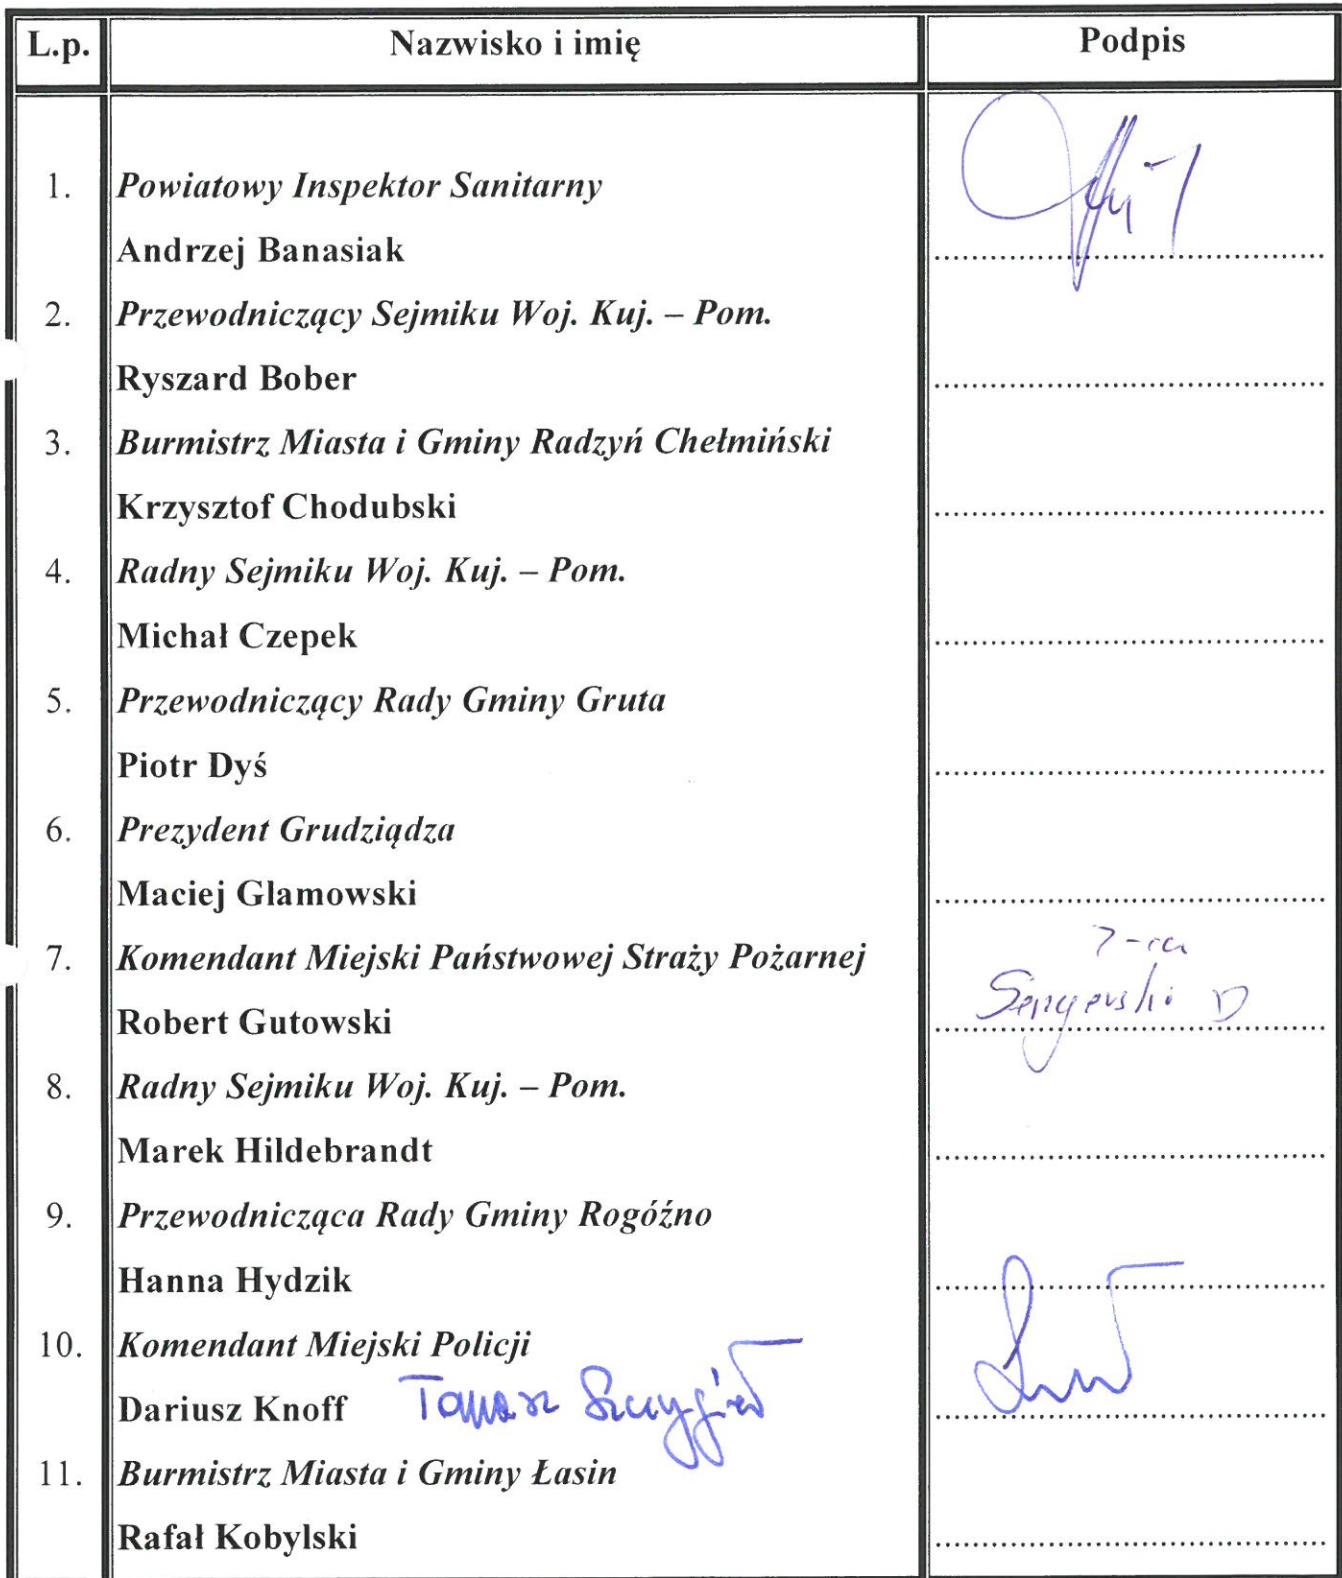 L.p. Nazwisko i imię Podpis
1. Powiatowy Inspektor Sanitarny
Andrzej Banasiak ..........................................
2. Przewodniczący Sejmiku Woj. Kuj. – Pom.
Ryszard Bober ..........................................
3. Burmistrz Miasta i Gminy Radzyń Chełmiński
Krzysztof Chodubski ..........................................
4. Radny Sejmiku Woj. Kuj. – Pom.
Michał Czepek ..........................................
5. Przewodniczący Rady Gminy Gruta
Piotr Dyś ..........................................
6. Prezydent Grudziądza
Maciej Glamowski ..........................................
7. Komendant Miejski Państwowej Straży Pożarnej
Robert Gutowski ..........................................
8. Radny Sejmiku Woj. Kuj. – Pom.
Marek Hildebrandt ..........................................
9. Przewodnicząca Rady Gminy Rogóźno
Hanna Hydzik ..........................................
10. Komendant Miejski Policji
Dariusz Knoff Tomasz Szczygieł ..........................................
11. Burmistrz Miasta i Gminy Łasin
Rafał Kobylski ..........................................